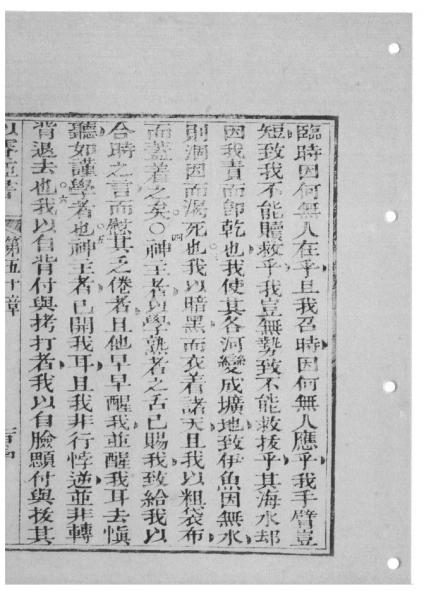 臨時因何無人在乎且我召時因何無人應乎我手臂豈
短致我不能贖救乎我豈無勢致不能救拔乎其海水却
因我責而卽乾也我使其各河變成壙地致伊魚因無水
則涸因而渴死也我以暗黑而衣着諸天且我以粗袋布
而蓋着之矣○神主者以學熟者之舌已賜我致給我以
合時之言而慰其乏倦者且他早早醒我並醒我耳去慎
聽如謹學者也神主者已開我耳且我非行悖逆並非轉
背退去也我以自背付與拷打者我以自臉顋付與拔其
第五十章